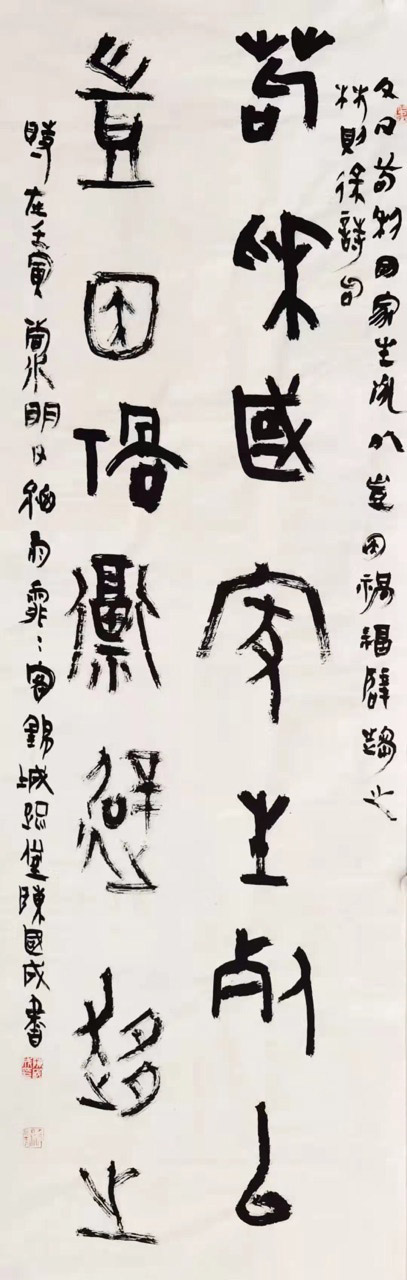 文曰苟利國家生死以豈因禍福辟趨之
林則徐詩句
苟利國家生死以
豈因禍福避趨之
時在壬寅明日雨霏霏錦城陳國成書